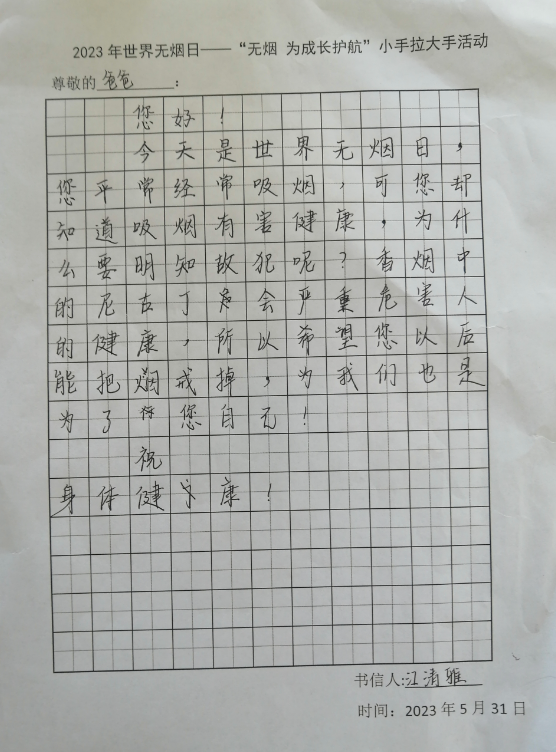 2023年世界无烟日——“无烟 为成长护航”小手拉大手活动
尊敬的爸爸：
您好！
今天是世界无烟日，
您平常经常吸烟，可您却
知道吸烟有害健康，为什
么要明知故犯呢？香烟中
的尼古丁会严重危害人
的健康，所以希望您以后
能把烟戒掉，为我们也是
为了您自己！
祝
身体健康！
书信人:江清雅
时间：2023年5月31日